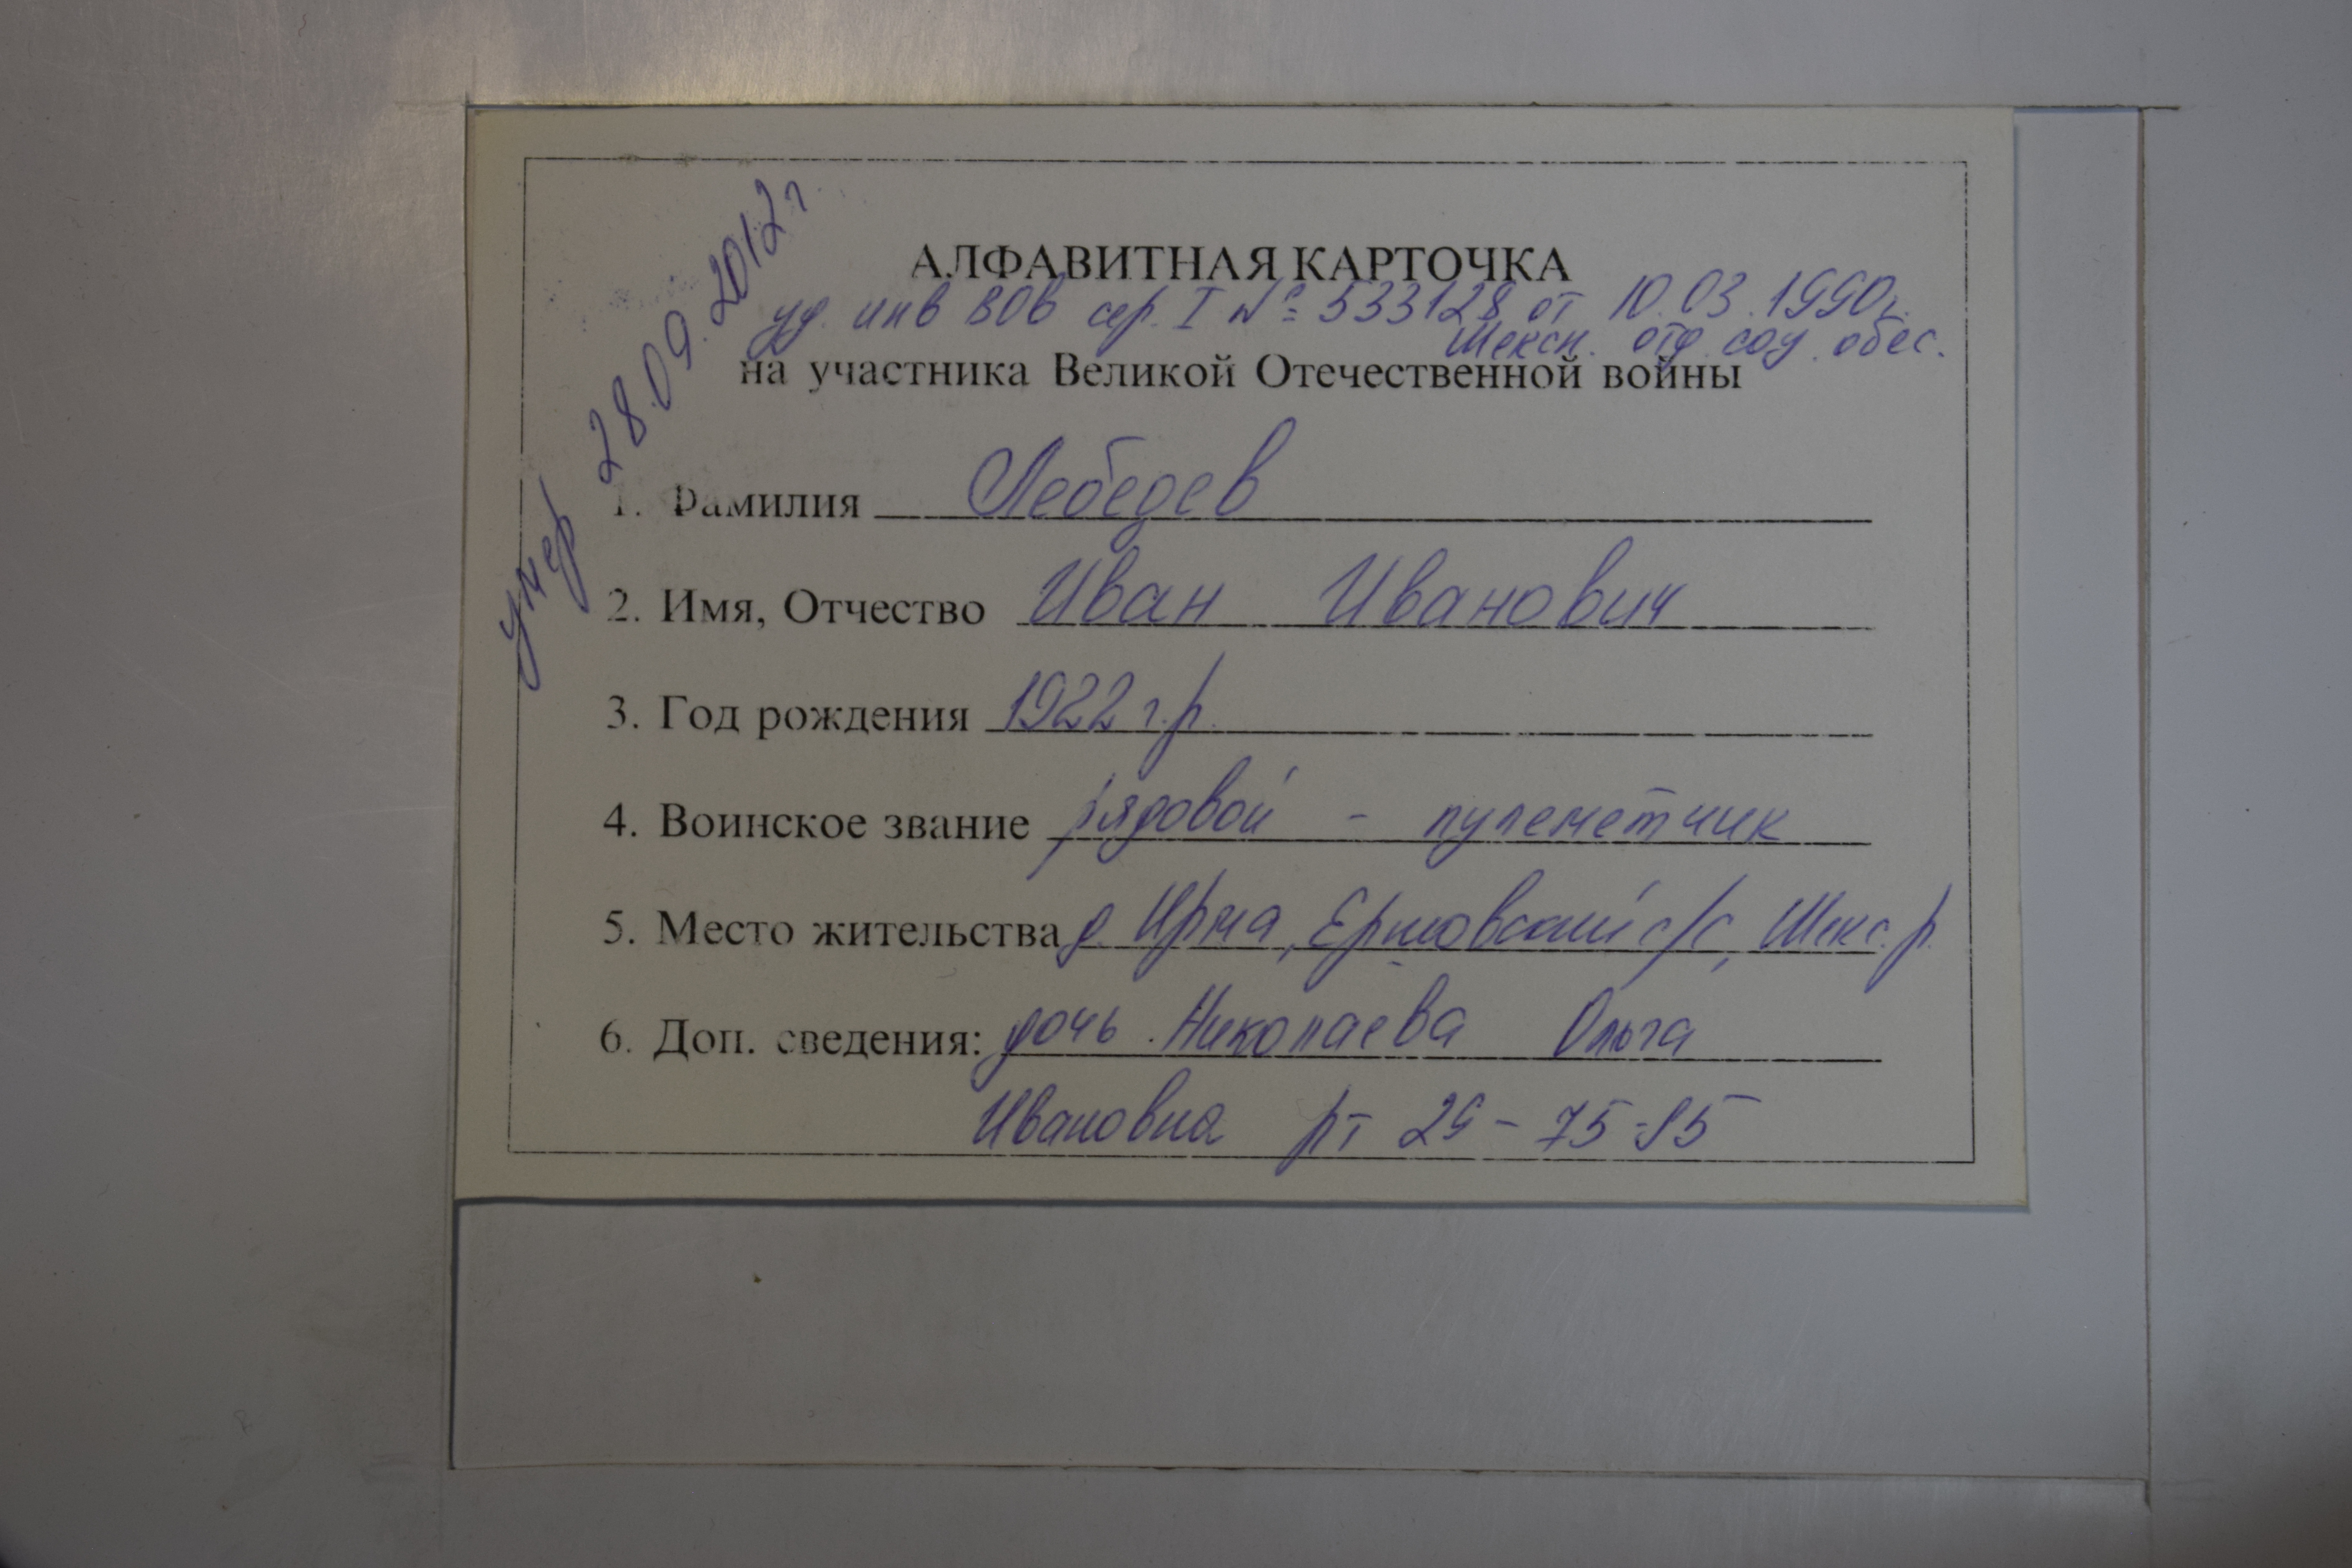 умер 28.09.2012 г.
АЛФАВИТНАЯ КАРТОЧКА
уд. инв ВОВ сер. I № 533128 от 10.03.1990г.
Шексн. отд. соц. обес.
на участника Великой Отечественной войны
1. Фамилия Лебедев
2. Имя, Отчество Иван Иванович
3. Год рождения 1922 г.р.
4. Воинское звание рядовой - пулеметчик
5. Место жительства д. Ирма, Ершовский с/с, Шекс. р.
6. Доп. сведения: дочь Николаева Ольга
Ивановна рт 29-75-95